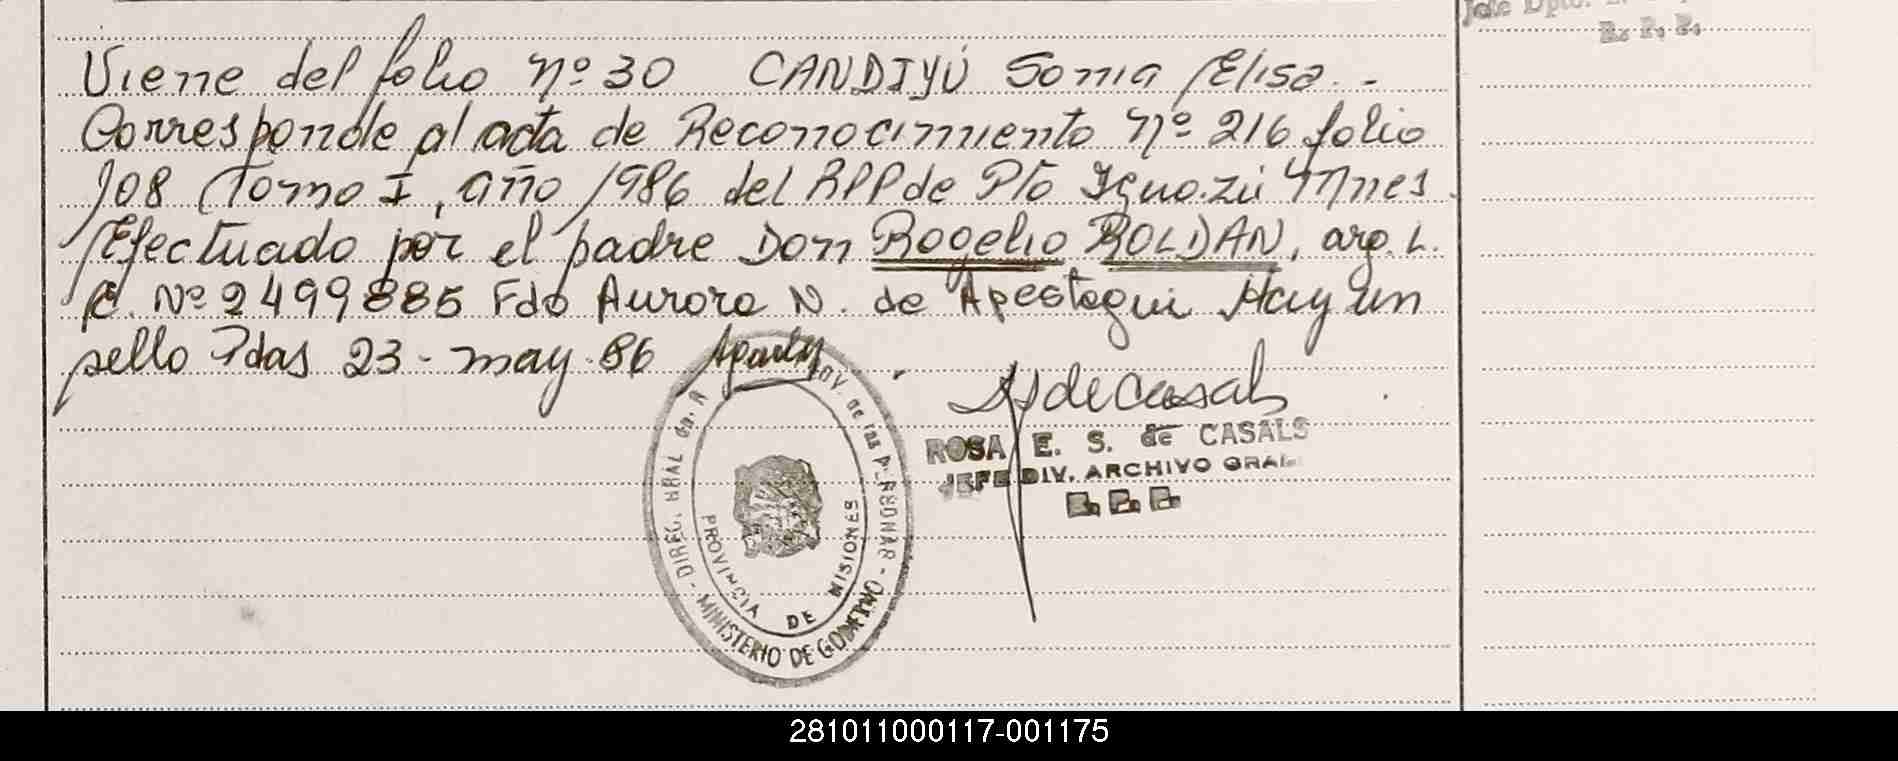 Jefe Dpto.
R. P. P.
Viene del folio Nº 30 CANDIYÚ Sonia Elisa. -
Corresponde al acta de Reconocimiento Nº 216 folio
108 Tomo I, año 1986 del RPP de Pto Iguazú Mnes.
Efectuado por el padre Don Rogelio ROLDAN, arg. L.
E. Nº 2499885 Fdo Aurora N. de Apestegui Hay un
sello Pdas 23 - may. 86
DIREC. GRAL del R. PROV. de las PERSONAS - MINISTERIO DE GOBIERNO -
PROVINCIA DE MISIONES
S de Casals
ROSA E. S. de CASALS
JEFE DIV. ARCHIVO GRAL
R. P. P.
281011000117-001175